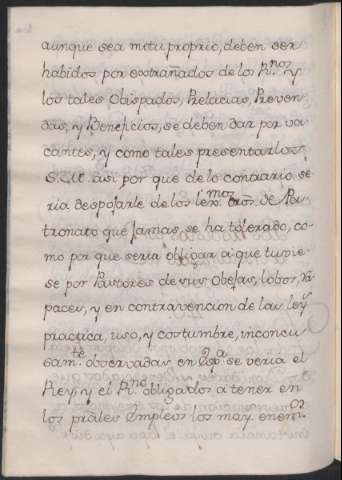 aunque sea motu proprio, deben ser
habidos por estrañados de los R.nos y
los tales Obispados, Prelacias, Preven
das, y Beneficios, se deben dar por va
cantes, y como tales presentarlos
S.M. asi por que de lo contrario se
ria despojarle de los leg.mos dros. de Pa
tronato que Jamas, se ha tolerado, co-
mo por que seria obligar a que tuvie-
se por Pastores de sus Obejas, lobos, ra
paces, y en contravencion de las ley.s
practica, uso, y costumbre, inconcu
sam.te observadas en Esp.a se veria el
Rey, y el R.no obligados a tener en
los prales Empleos los may.es enem.os